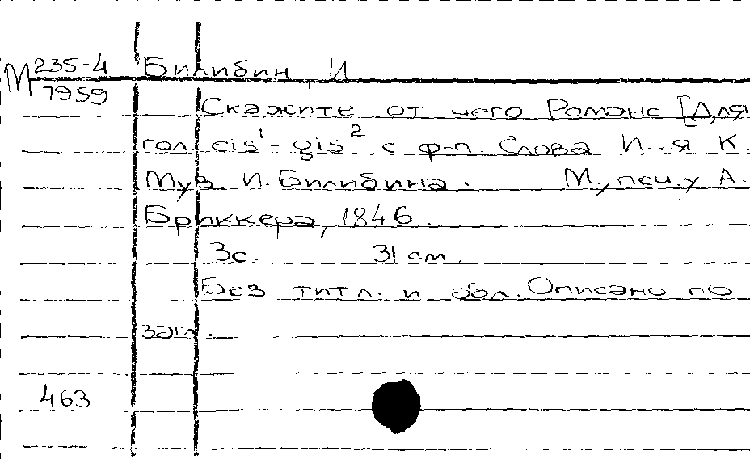 М 235-4 Билибин, И
7959
Скажите от чего Романс [Для
гол. cis¹-gis² с ф-п. Слова И. -я К.
Муз. И. Билибина. М., ценз. у А.
Бриккера, 1846.
3с. 31 см.
Без титл. и обл. Описано по
загл.
463